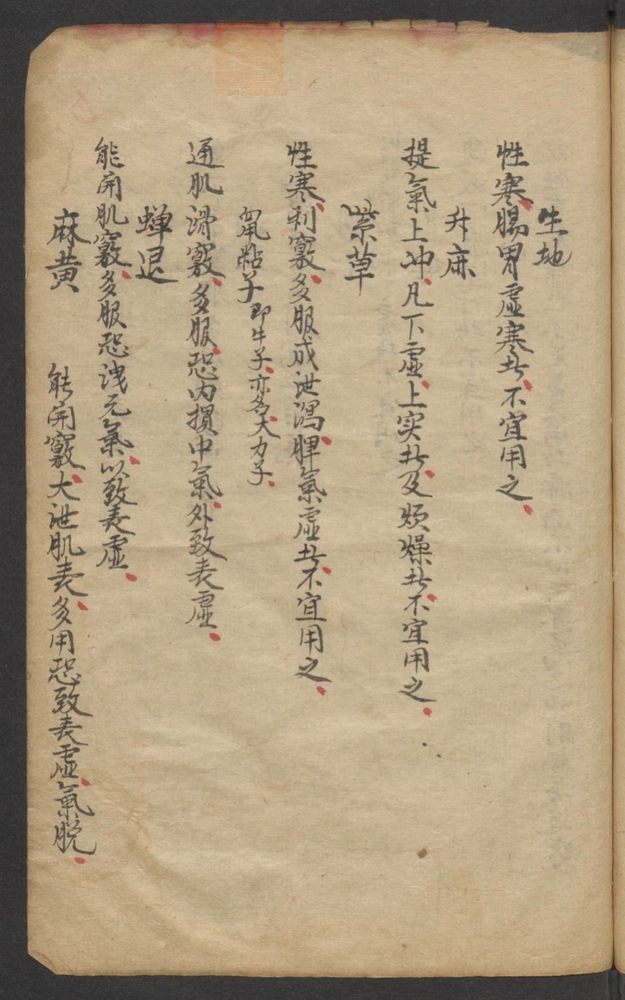 生地
性寒、腸胃虛寒者、不宜用之、
升麻
提氣上冲、凡下虛、上实者、及烦燥者、不宜用之、
紫草
性寒利竅、多服成泄瀉、脾氣虛者、不宜用之、
鼠粘子 即牛子、亦名大力子、
通肌滑竅、多服、恐内損中氣、外致表虛、
蟬退
能開肌竅、多服恐洩元氣、以致表虛、
麻黄 能開竅、大泄肌表、多用恐致表虛、氣脱、